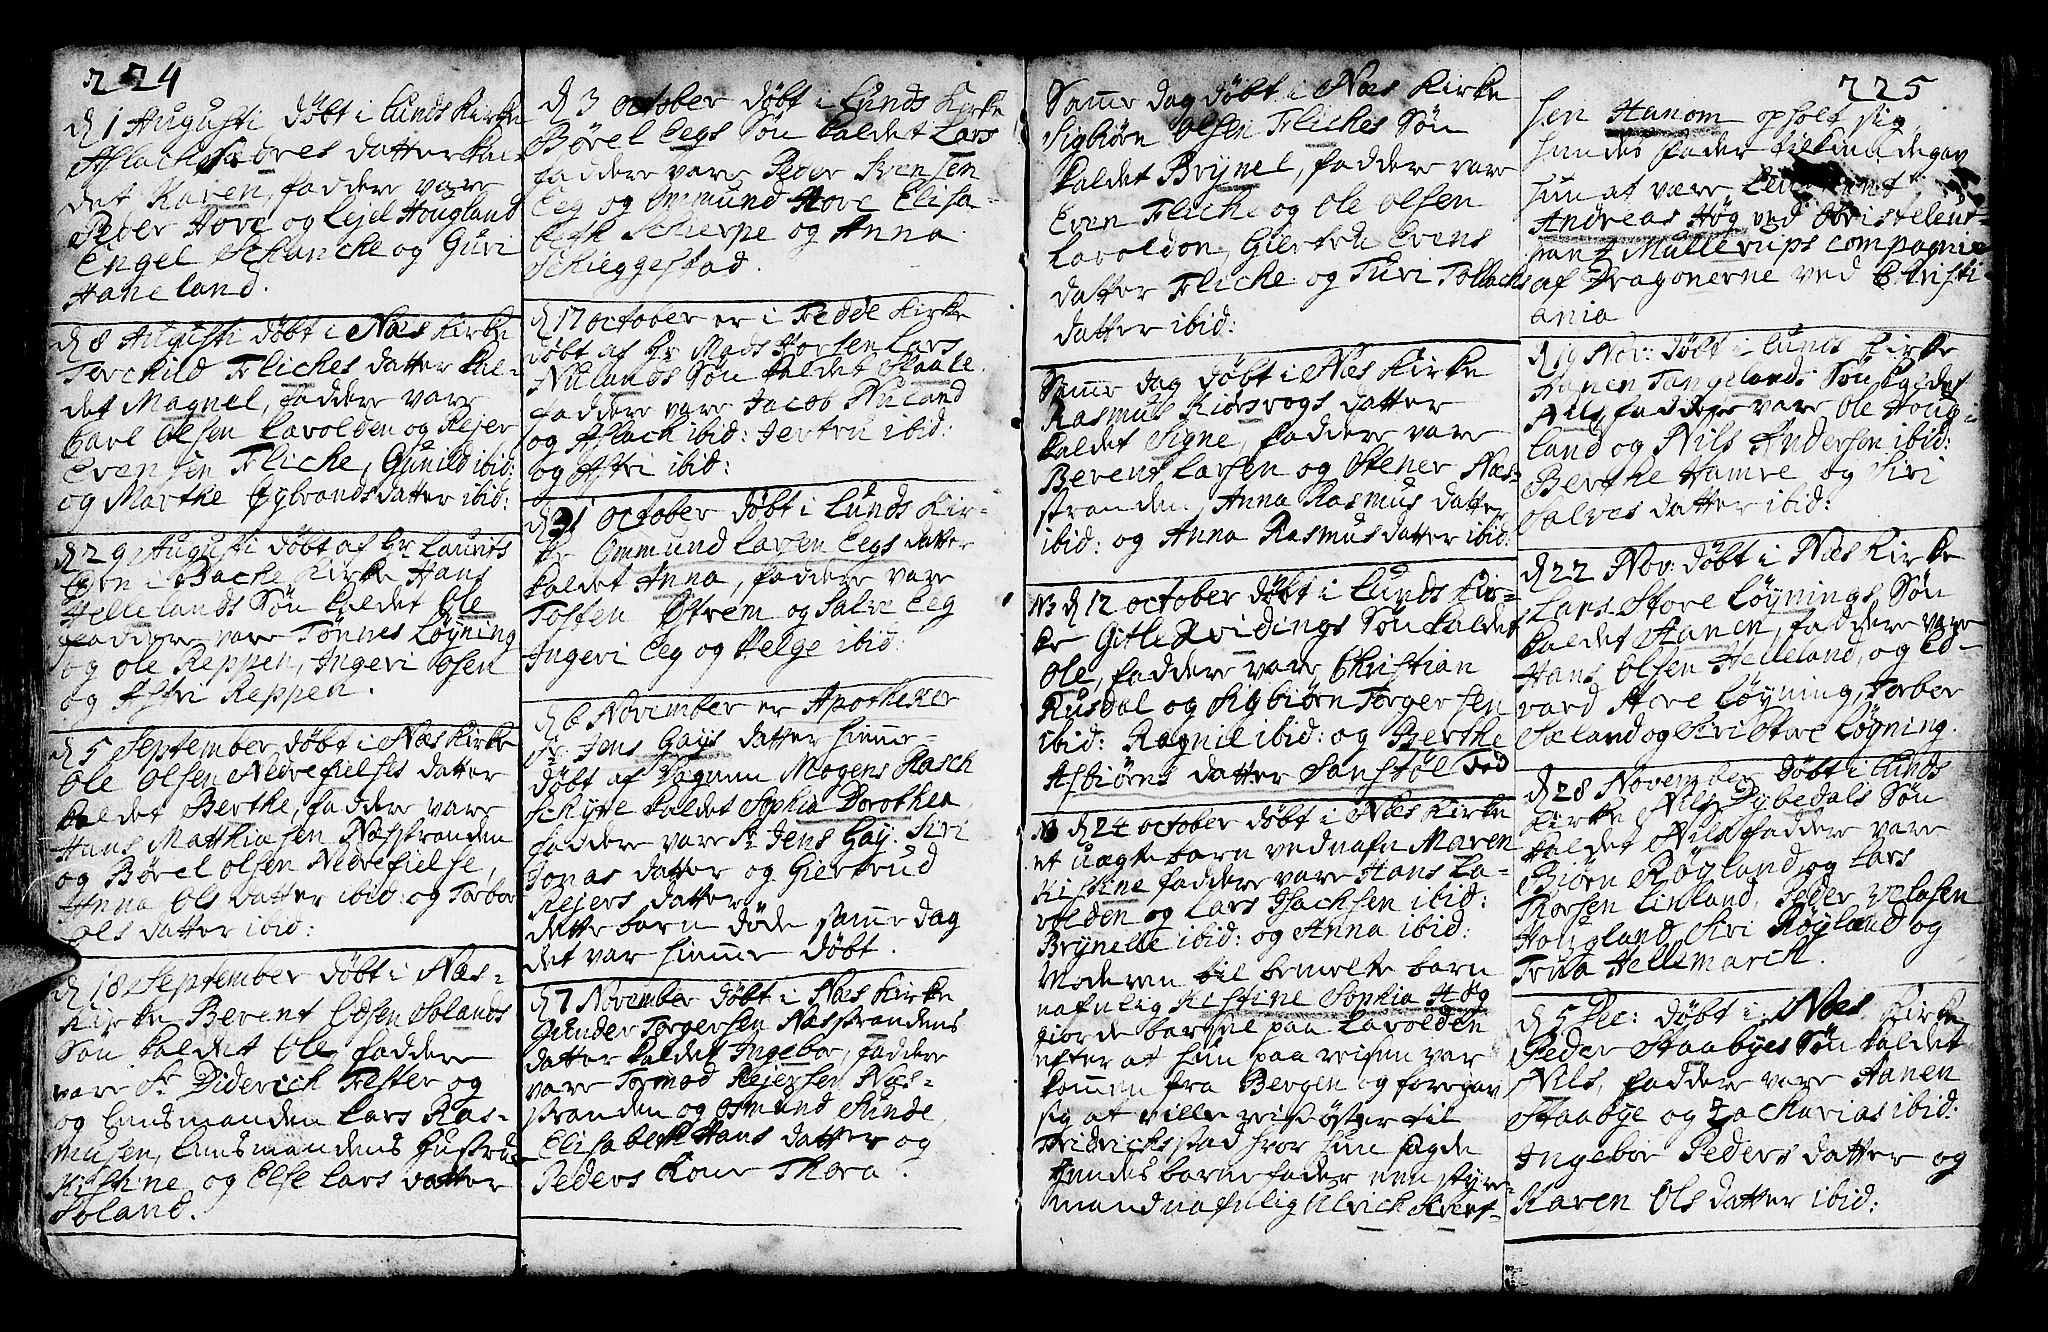 224
d 1 Augusti döbt i Lunds Kirke
Aslach datter kal-
det Karen, faddere vare
Peder Hove og Ejel Hougland
Engel Schancke og Guri
Haneland.
d 8 Augusti döbt i Næs Kirke
Torchild Fliches datter kal-
det Magnel, faddere vare
Carl Olsen Lavolden og Rejer
Evensen Fliche, Gunild ibid:
og Marthe Gÿbrandsdatter ibid:
d 29 Augusti döbt af Hr Laurits
i Backe Kirke Hans
Hellelands Sön kaldet Ole
faddere vare Tönnes Löyning
og Ole Reppen, Ingeri
og Astri Reppen.
d 5 September döbt i Næs Kirke
Ole Olsen Nedrefielses datter
kaldet Berthe, faddere vare
Hans Matthiasen Næsstranden
og Börel Olsen Nedrefielse,
Anna Ols datter ibid: og Torbor
Ols datter ibid:
d 18 September döbt i Næs-
Kirke Berent Edsen Solands
Sön kaldet Ole, faddere
vare Sr Diderich Fester og
og Lensmanden Lars Ras-
musen, Lensmandens Hustrue
Kistine og Else Lars datter
Soland.
d 3 october döbt i Lunds Kirke
Börel Eegs Sön kaldet Lars
faddere vare Peder Svensen
Eeg og Ommund Hove Elisa-
beth Scherpe og Anna
Schieggestad.
d 17 october er i Fedde Kirke
döbt af Hr Mads Horsen Lars
Nulands Sön kaldet Staale.
Faddere vare Jacob Nuland
og Aslach ibid: Jertru ibid:
og Astri ibid:
d 31 october döbt i Lunds Kir-
ke Ommund Larsen Eegs datter
kaldet Anna, faddere vare
Tosten Östrem og Salve Eeg
Ingeri Eeg og Helge ibid:
d 6 November er Apotheker
Sr Jens Gays datter hiemme-
döbt af Mogens Rasch
kaldet Sophia Dorothea
faddere vare Sr Jens Gay: Siri
Jonas datter og Giertrud
Rejers datter
dette barn döde samme dag
det var hiemme döbt.
d 7 November döbt i Næs Kirke
Gunder Torgersen Næsstrandens
datter kaldet Ingebor, faddere
vare Tormod Rejersen Næs-
stranden og Osmund Sunde,
Elisabeth Hans datter og
Peders Kone Thora.
Samme dag döbt i Næs Kirke
Sigbiörn Olsen Fliches Sön
kaldet Brynel, faddere vare
Even Fliche og Ole Olsen
Lavolden, Giertru Evens
datter Fliche og Turi Tollachs
datter ibid:
Samme dag döbt i Næs Kirke
Rasmus Kidsvogs datter
kaldet Signe, faddere vare
Berent Larsen og Stener Næs-
stranden, Anna Rasmus datter
ibid: og Anna Rasmusdatter ibid:
d 12 october döbt i Lunds Kir-
ke Gitle Qvidings Sön kaldet
Ole, faddere vare Christian
Rusdal og Sigbiörn Torgersen
ibid: Ragnil ibid: og Berthe
Asbiörns datter Sanstöl
d 24 october döbt i Næs Kirke
et uægte barn ved nafn Maren
Kistine faddere vare Hans La-
volden og Lars Isachsen ibid:
Brynelle ibid: og Anna ibid:
Moderen til bemelte barn
nafnlig Kistine Sophia Høg
giorde barsne paa Lavolden
efter at hun paa reisen var
kommen fra Bergen og foregav
sig at ville reise öster til
Fridrickstad hvor hun sagde
hendes barnefader een styre-
mand nafnlig Ulrick
225
sen Hanom opholt sig
hendes fader tilkiendegav
hun at være
Andreas Høg ved Obristelent-
nant Müllerups compagnie
af Dragonerne ved Christi-
ania
d 19 Nov: döbt i Lunds Kirke
Hanen Tangelands Sön kaldet
faddere vare Ole Houg-
land og Nils Andersen ibid:
Berthe Hamre og Siri
Salves datter ibid:
d 22 Nov: döbt i Næs Kirke
Lars Store Löynings Sön
kaldet Hanen, faddere vare
Hans Olsen Helleland, og Ed-
vard Store Löyning, Torbor
Sæland og Siri Store Löyning.
d 28 November döbt i Lunds
Kirke Nils Dybedals Sön
kaldet Nils faddere vare
Biörn Röyland og Lars
Thorsen Linland, Peder Velasen
Hougland, Siri Röyland og
Trua Hellemarch.
d 5 Dec: döbt i Næs Kirke
Peder Staabyes Sön kaldet
Nils, faddere vare Hanen
Staabye og Zacharias ibid:
Ingebor Peders datter og
Karen Ols datter ibid: